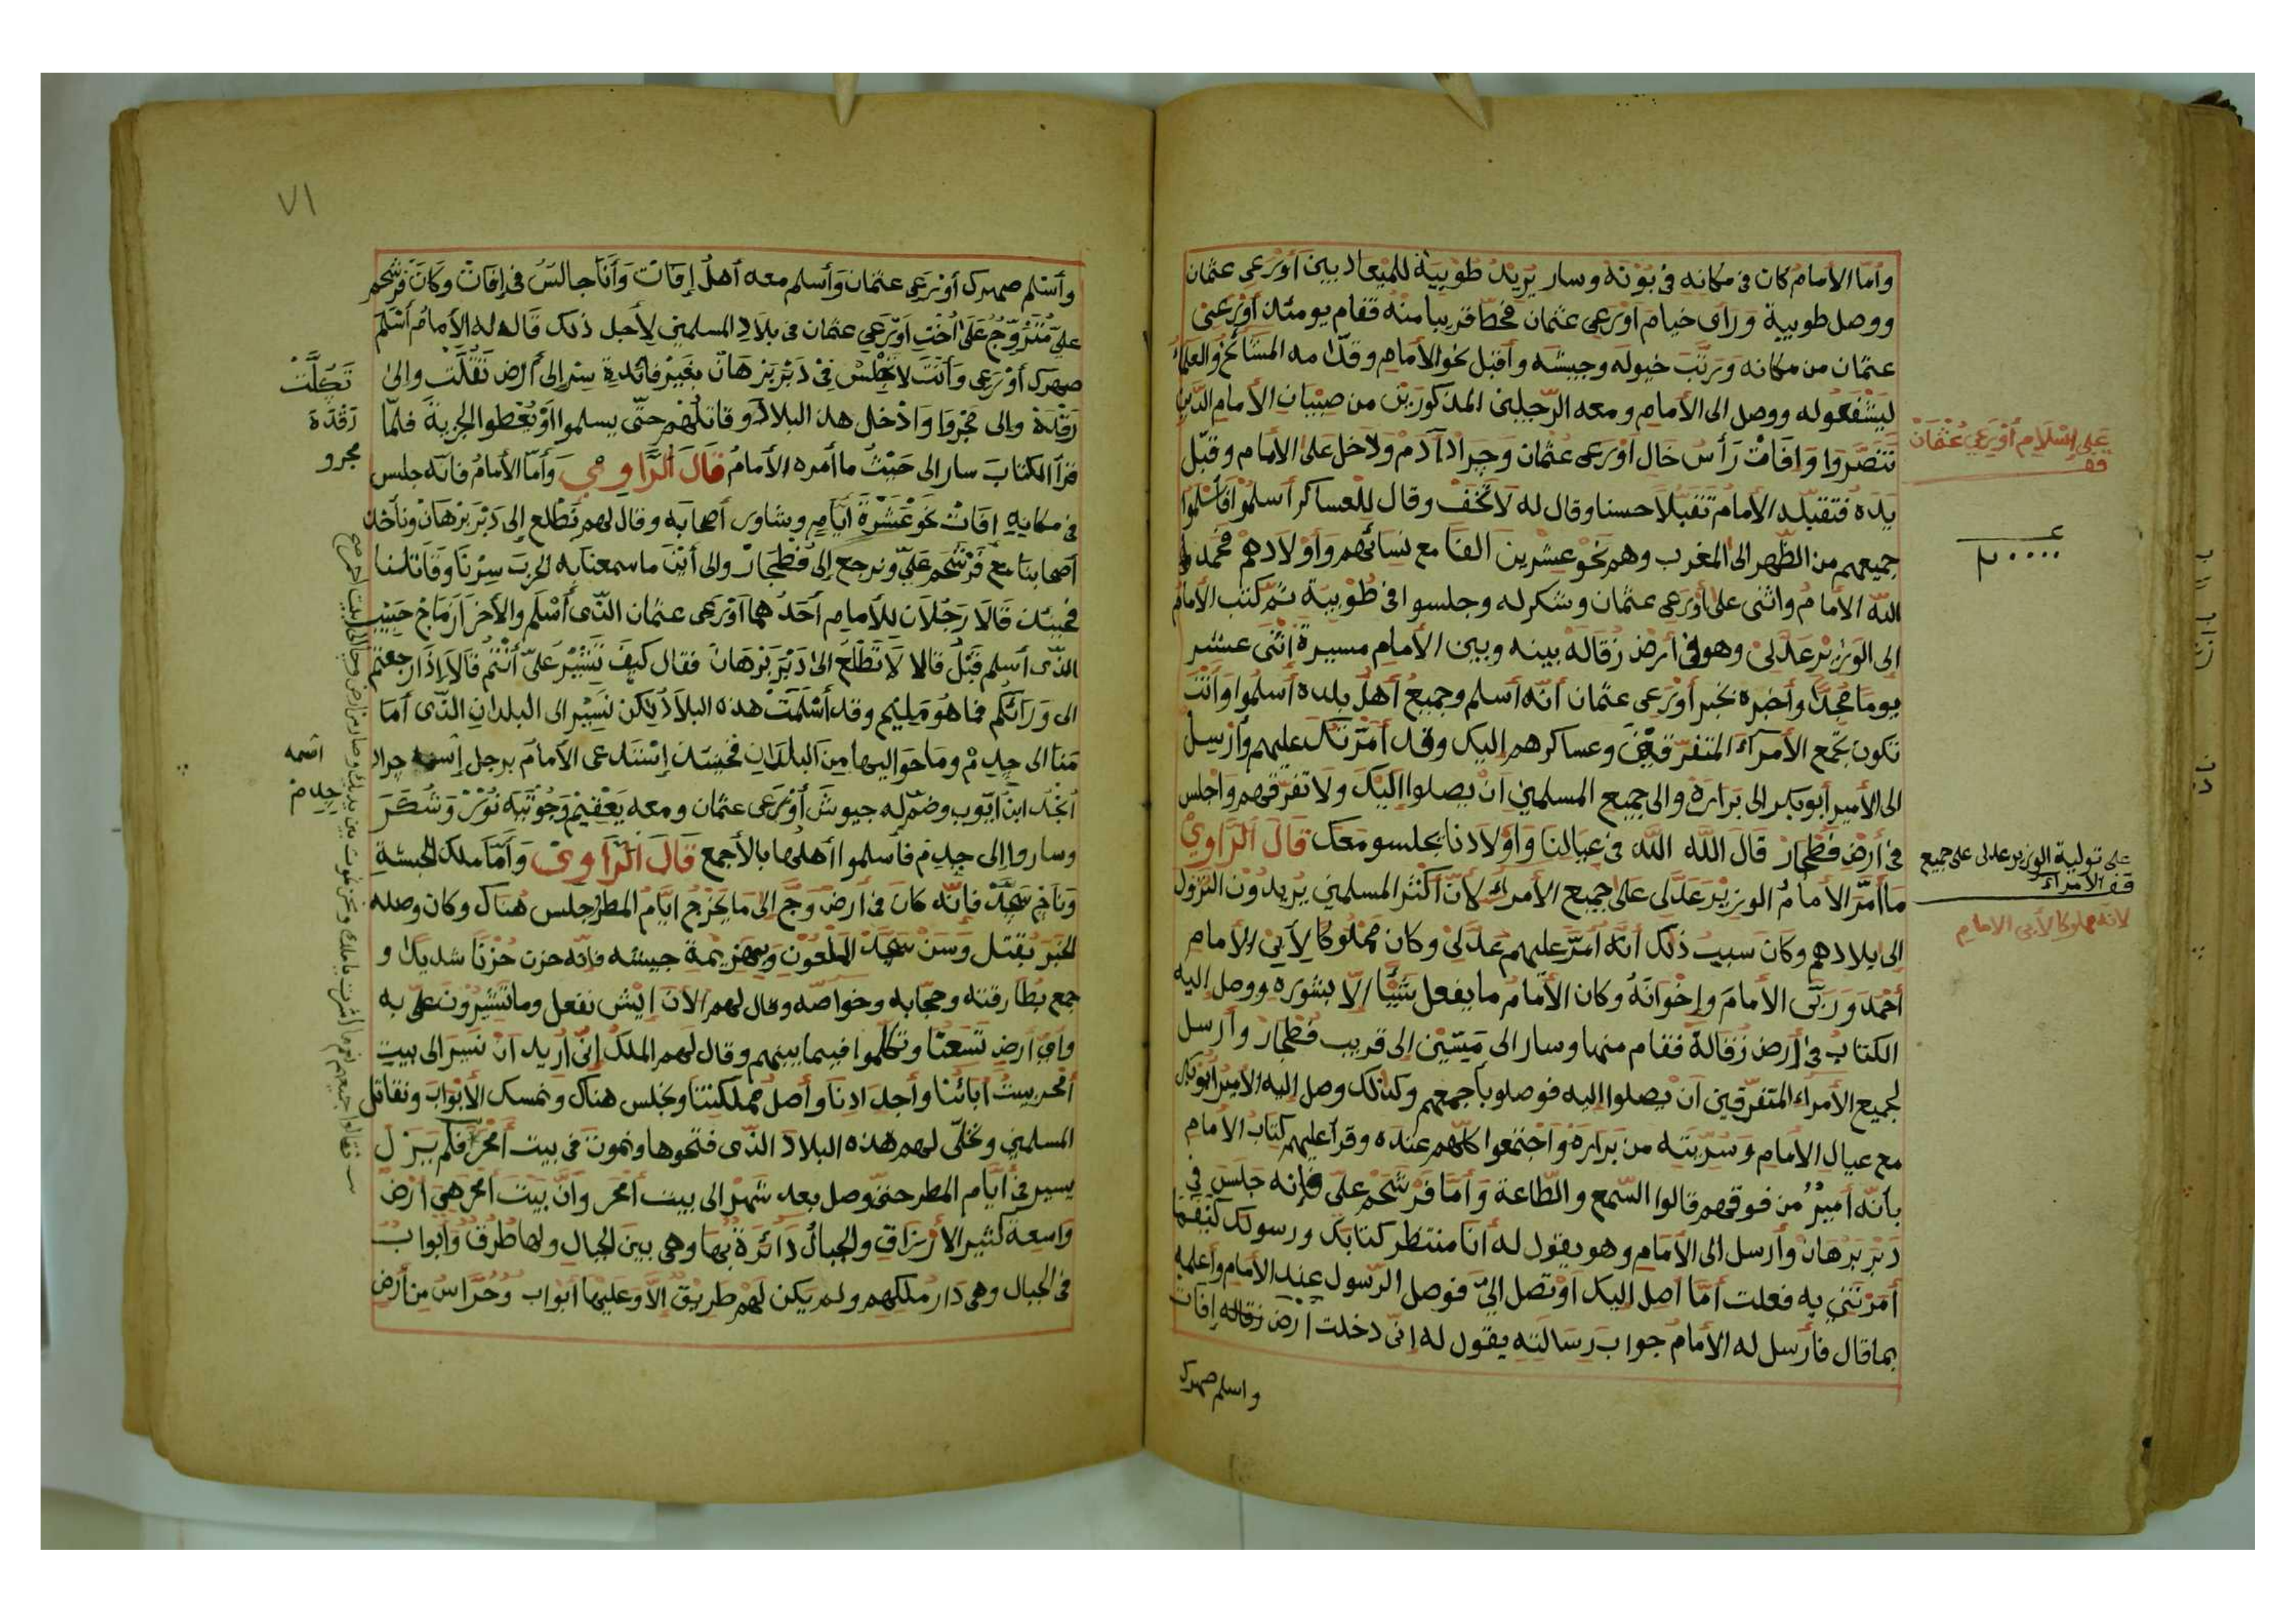 وأما الأمام كان في مكانه في بوتة وسار يريد طوبية للميعاد بين أورعى عثمان
ووصل طوبية وراى خيام أورعى عثمان فحطّ قريبا منه فقام يومئذ أورعى
عثمان من مكانه ورتب خيوله وجيشه وأقبل نحو الأمام وقدّامه المشائخ والعلماء
ليشفعوله ووصل الى الأمام ومعه الرّجلين المذكورين من صبيان الأمام الذين
تنصّروا وافات رأس خال أورعى عثمان وجراد آدم ودخل على الأمام وقبّل
يده فتقبّله الأمام تقبّلا حسنا وقال له لا تخف وقال للعساكر أسلموا فأسلموا
جميعهم من الظهر الى المغرب وهم نحو عشرين الفا مع نسائهم وأولادهم فحمد
الله الأمام واثنى على أورعى عثمان وشكر له وجلسوا في طوبية ثم كتب الأمام
إلى الوزير عدلى وهو في أرض زقالة بينه وبين الأمام مسيرة اثنى عشر
يوما مجدّا وأخبره بخبر أورعى عثمان أنّه أسلم وجميع أهل بلده أسلموا وأنت
تكون تجمع الأمرآء المتفرقين وعساكرهم إليك وقد أمّرتك عليهم وأرسل
الى الأمير أبو بكر الى برارة والى جميع المسلمين أن يصلوا إليك ولا تفرقهم واجلس
في أرض فطجار قال الله الله في عيالنا وأولادنا يجلسو معك قال الراوي
ما أمّر الأمام الوزير عدلى على جميع الأمراء لأنّ أكثر المسلمين يريدون النزول
إلى بلادهم وكان سبب ذلك أنّه أمّر عليهم عدلى وكان مملوكا لأبي الأمام
أحمد وربّى الأمام وإخوانه وكان الأمام ما يفعل شيئا إلّا بشوره ووصل إليه
الكتاب في أرض زقالة فقام منها وسار الى ميتين إلى قريب فطجار وأرسل
لجميع الأمراء المتفرّقين أن يصلوا إليه فوصلو بأجمعهم وكذلك وصل إليه الأمير أبو بكر
مع عيال الأمام وسرّيته من برارة واجتمعوا كلّهم عنده وقرأ عليهم كتاب الأمام
بأنّه أمير من فوقهم قالوا السّمع والطّاعة وأما فرشحم على فإنه جلس في
دبر برهان وأرسل الى الأمام وهو يقول له أنا منتظر كتابك ورسولك كيفما
أمرتني به فعلت أمّا أصل إليك أو تصل إليّ فوصل الرسول عند الأمام وأعلمه
بما قال فأرسل له الأمام جواب رسالته يقول له إنّي دخلت أرض زقاله إفات
واسلم صهرك
على إسلام أورعى عثمان
قف
٢٠٠٠٠
على تولية الوزير عدلى على جميع
قف الأمراء
لأنه مملوكا لأبى الامام
٧١
وأسلم صهرك أورعى عثمان وأسلم معه أهل إفات وأنا جالس في إفات وكان فرشحم
على متزوّج على أخت أورعى عثمان في بلاد المسلمين لأجل ذلك قال له الأمام أسلم
صهرك أورعى وأنت لا تجلس في دبر برهان بغير فائدة سر إلى أرض تقلت وإلى
رقدة وإلى مجروا وادخل هذه البلاد وقاتلهم حتّى يسلموا أو يعطوا الجزية فلمّا
قرأ الكتاب سار الى حيث ما أمره الأمام قال الراوي وأمّا الأمام فانه جلس
في مكانه إفات نحو عشرة أيام وشاور أصحابه وقال لهم نطلع إلى دبر برهان ونأخذ
أصحابنا مع فرشحم علىّ ونرجع إلى فطجار وإلى أين ما سمعنا به الحرب سرنا وقاتلنا
فحينئذ قالا رجلان للأمام أحدهما أورعى عثمان الذّى أسلم والأخر أزماخ حبيب
الذّى أسلم قبل قالا لا تطلع الى دبر برهان فقال كيف تشير علىّ أنتم قالا إذا رجعتم
الى ورائكم فما هو مليح وقد أسلمت هذه البلاد لكن نسير الى البلدان الذّى أما
منّا الى جدم وما حواليها من البلدان فحينئذ إستدعى الأمام برجل إسمه جراد
أنجد ابن أيّوب وضمّ له جيوش أورعى عثمان ومعه يعقيم وجوتيه نور وشكر
وساروا إلى جدم فأسلموا أهلها بالأجمع قال الراوي وأمّا ملك الحبشة
وناخ سجد فإنّه كان في أرض وج إلى ما يخرج ايّام المطر جلس هناك وكان وصله
الخبر بقتل وسن سجد الملعون وبهزيمة جيشه فإنّه حزن حزنا شديدا و
جمع بطارقته وحجّابه وخواصّه وقال لهم الآن ايش نفعل وما تشيرون علىّ به
وأيّ أرض تسعنا وتكلموا فيما بينهم وقال لهم الملك إنّى أريد أن نسير الى بيت
أمحر بيت آبائنا وأجدادنا وأصل مملكتنا ونجلس هناك ونمسك الأبواب ونقاتل
المسلمين ونخلّى لهم هذه البلاد الذّى فتحوها ونموت في بيت أمحر فلم يزل
يسير في أيّام المطر حتى وصل بعد شهر الى بيت أمحر وأنّ بيت أمحر هي أرض
واسعة كثير الأرزاق والجبال دائرة بها وهي بين الجبال ولها طرق وأبواب
في الجبال وهي دار ملكهم ولم يكن لهم طريق إلّا وعليها أبواب وحرّاس من أرض
تكلت
زقدة
مجرو
اسمه
جدم